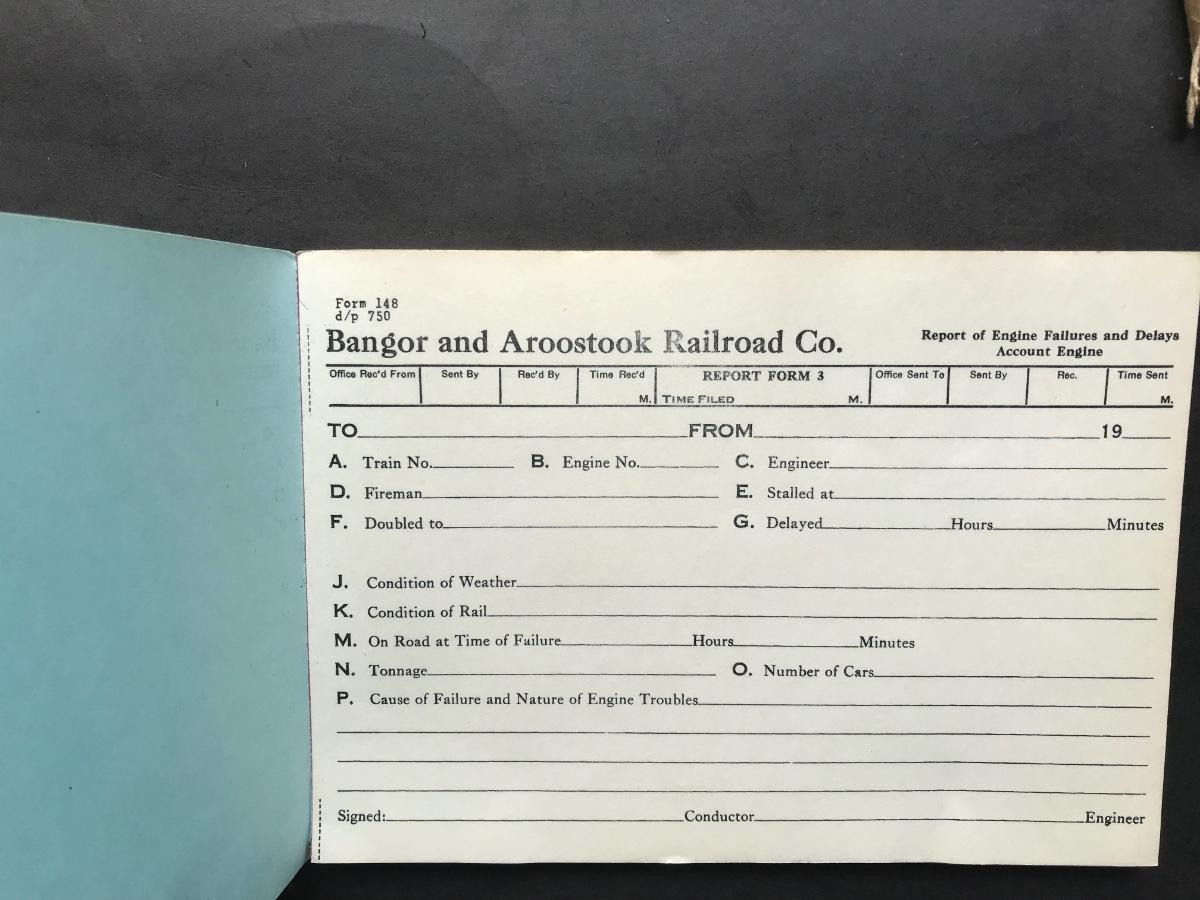 Form 148
d/p 750
Bangor and Aroostook Railroad Co.
Report of Engine Failures and Delays
Account Engine
Office Rec'd From Sent By Rec'd By Time Rec'd M. REPORT FORM 3 Office Sent To Sent By Rec. Time Sent
TIME FILED M. M.
TO FROM 19
A. Train No. B. Engine No. C. Engineer
D. Fireman E. Stalled at
F. Doubled to G. Delayed Hours Minutes
J. Condition of Weather
K. Condition of Rail
M. On Road at Time of Failure Hours Minutes
N. Tonnage O. Number of Cars
P. Cause of Failure and Nature of Engine Troubles
Signed: Conductor Engineer